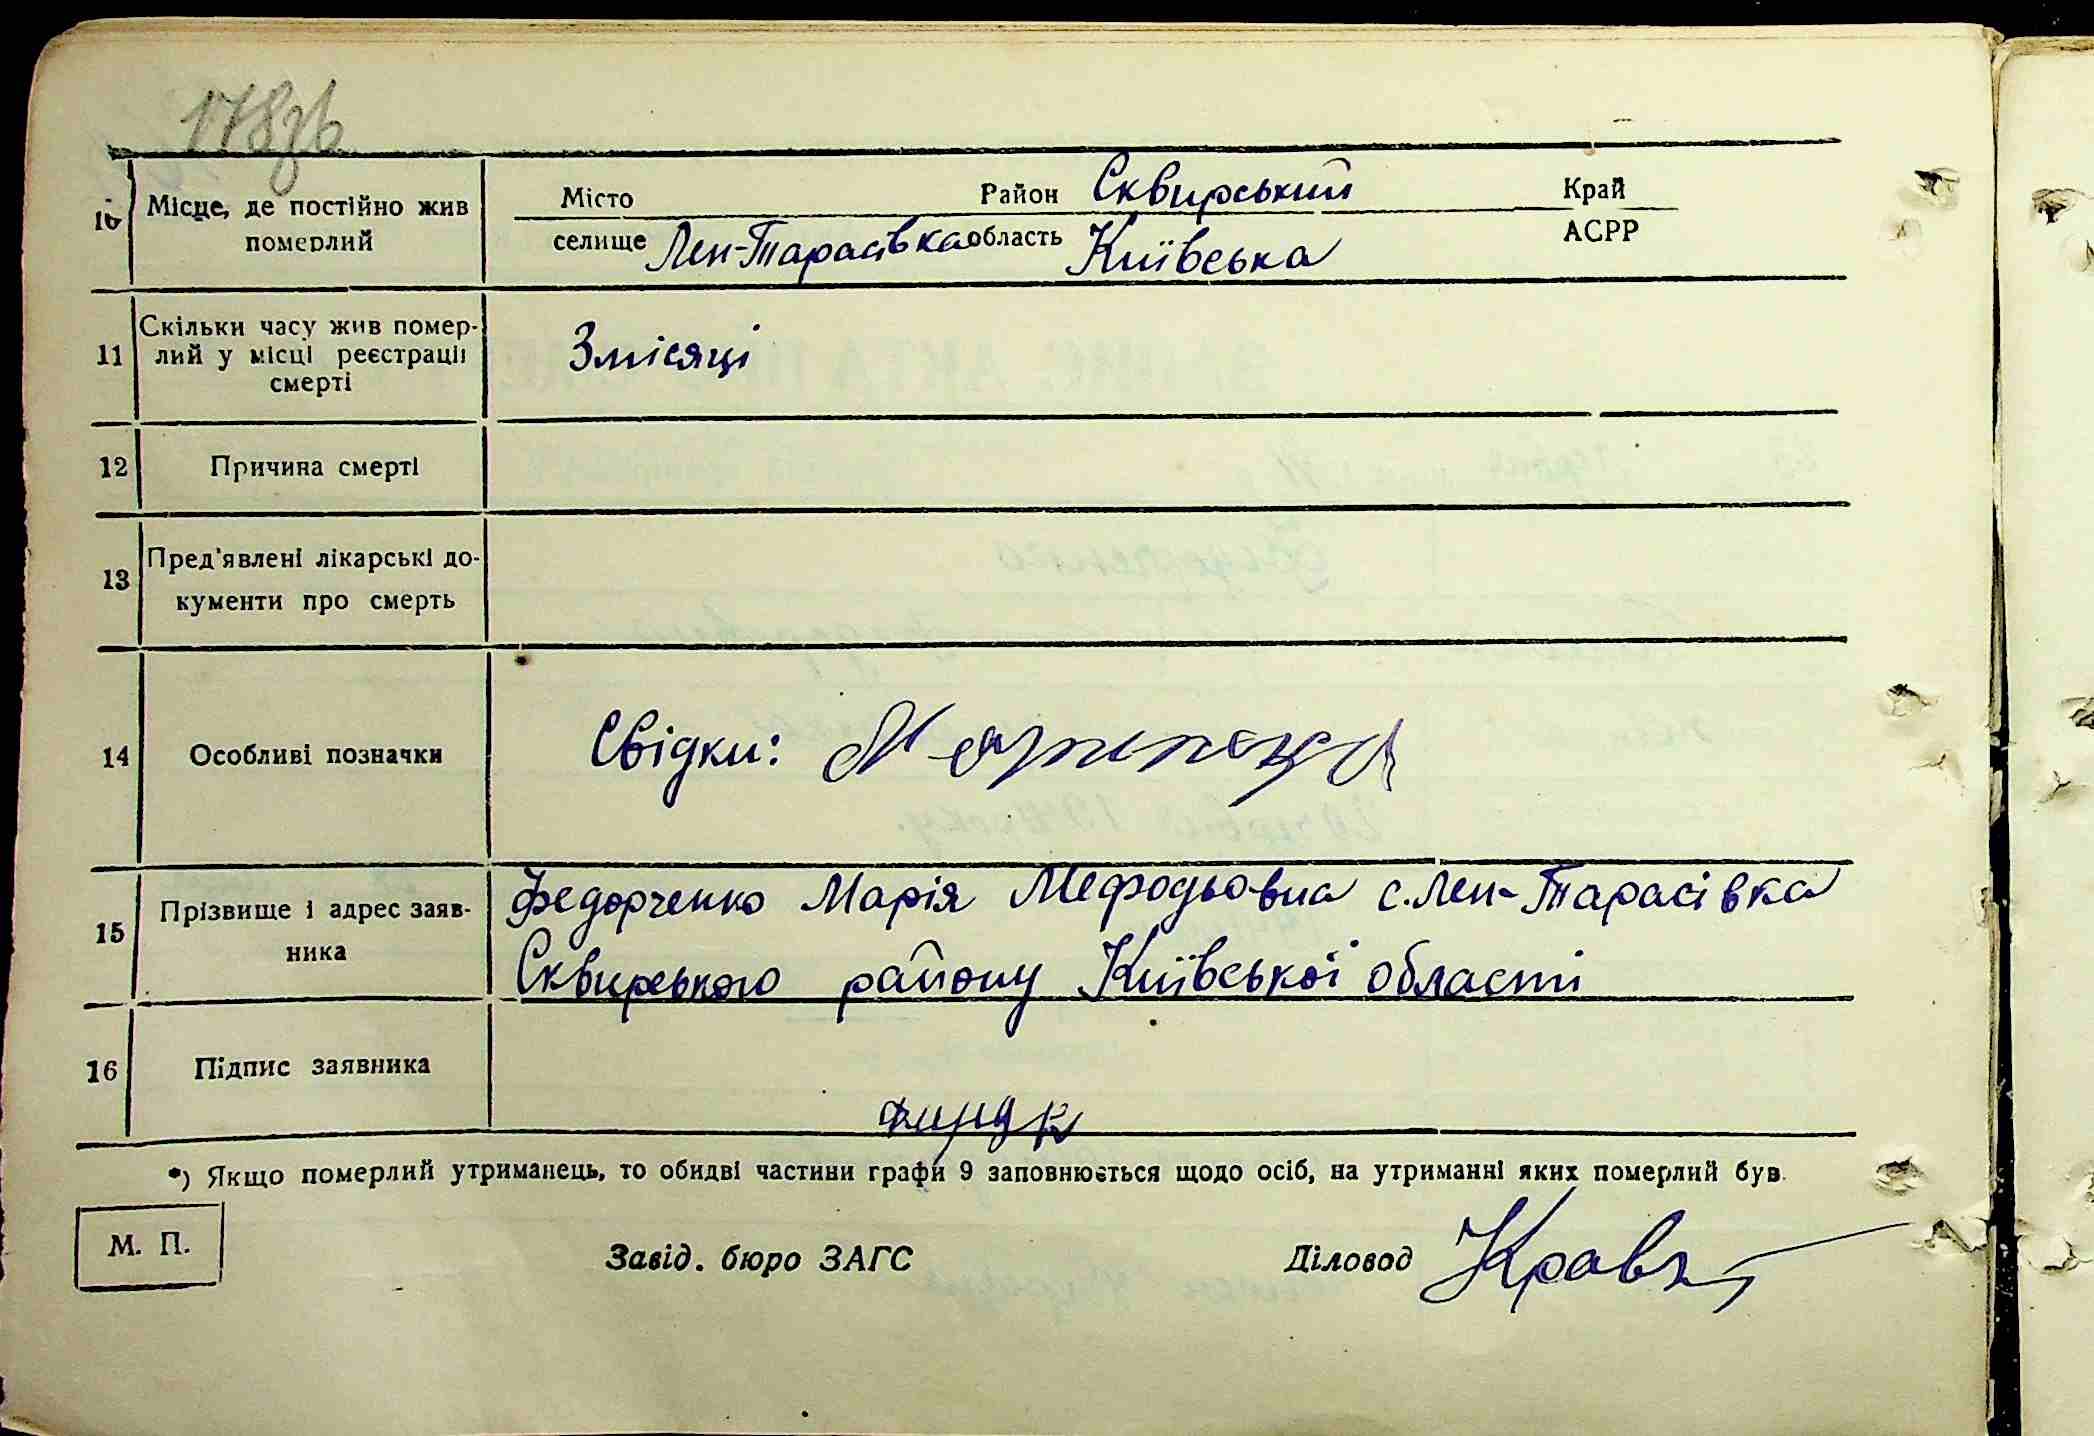 178зв
10 Місце, де постійно жив померлий
Місто Район Сквирський Край
селище Лен-Тарасівка область Київська АСРР
11 Скільки часу жив помер-
лий у місці реєстрації
смерті
3 місяці
12 Причина смерті
13 Пред'явлені лікарські до-
кументи про смерть
14 Особливі позначки
Свідки:
15 Прізвище і адрес заяв-
ника
Федорченко Марія Мефодьовна с. Лен-Тарасівка
Сквирського району Київської області
16 Підпис заявника
*) Якщо померлий утриманець, то обидві частини графи 9 заповнюється щодо осіб, на утриманні яких померлий був.
М. П.
Завід. бюро ЗАГС Діловод